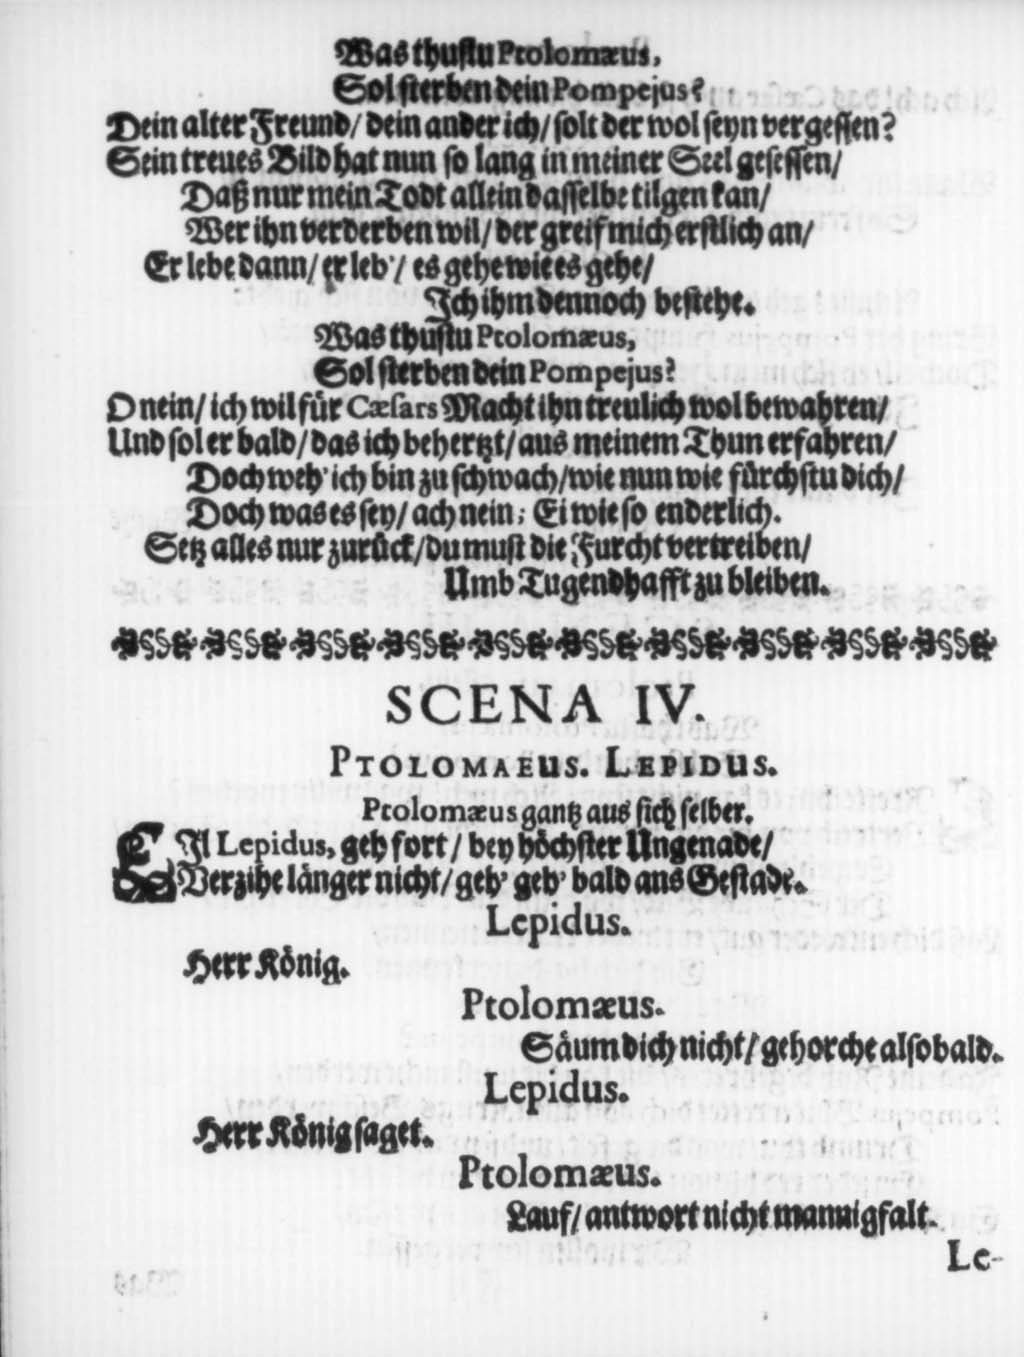 Was thustu Ptolomæus,
Sol sterben dein Pompejus?
Dein alter Freund/ dein ander ich/ solt der wol seyn vergessen?
Sein treues Bild hat nun so lang in meiner Seel gesessen/
Daß nur mein Todt allein dasselbe tilgen kan/
Wer ihn verderben wil/ der greif mich erstlich an/
Er lebe dann/ er leb'/ es gehe wie es gehe/
Ich ihm dennoch bestehe.
Was thustu Ptolomæus,
Sol sterben dein Pompejus?
O nein/ ich wil für Cæsars Macht ihn treulich wol bewahren/
Und sol er bald/ das ich behertzt/ aus meinem Thun erfahren/
Doch weh' ich bin zu schwach/ wie nun wie fürchstu dich/
Doch was es sey/ ach nein; Ei wie so enderlich.
Setz alles nur zurück/ du must die Furcht vertreiben/
Umb Tugendhafft zu bleiben.
SCENA IV.
PTOLOMAEUS. LEPIDUS.
Ptolomæus gantz aus sich selber.
EJ Lepidus, geh fort/ bey höchster Ungenade/
Verzihe länger nicht/ geh' geh' bald ans Gestade.
Lepidus.
Herr König.
Ptolomæus.
Säum dich nicht/ gehorche alsobald.
Lepidus.
Herr König saget.
Ptolomæus.
Lauf/ antwort nicht mannigfalt.
Le-